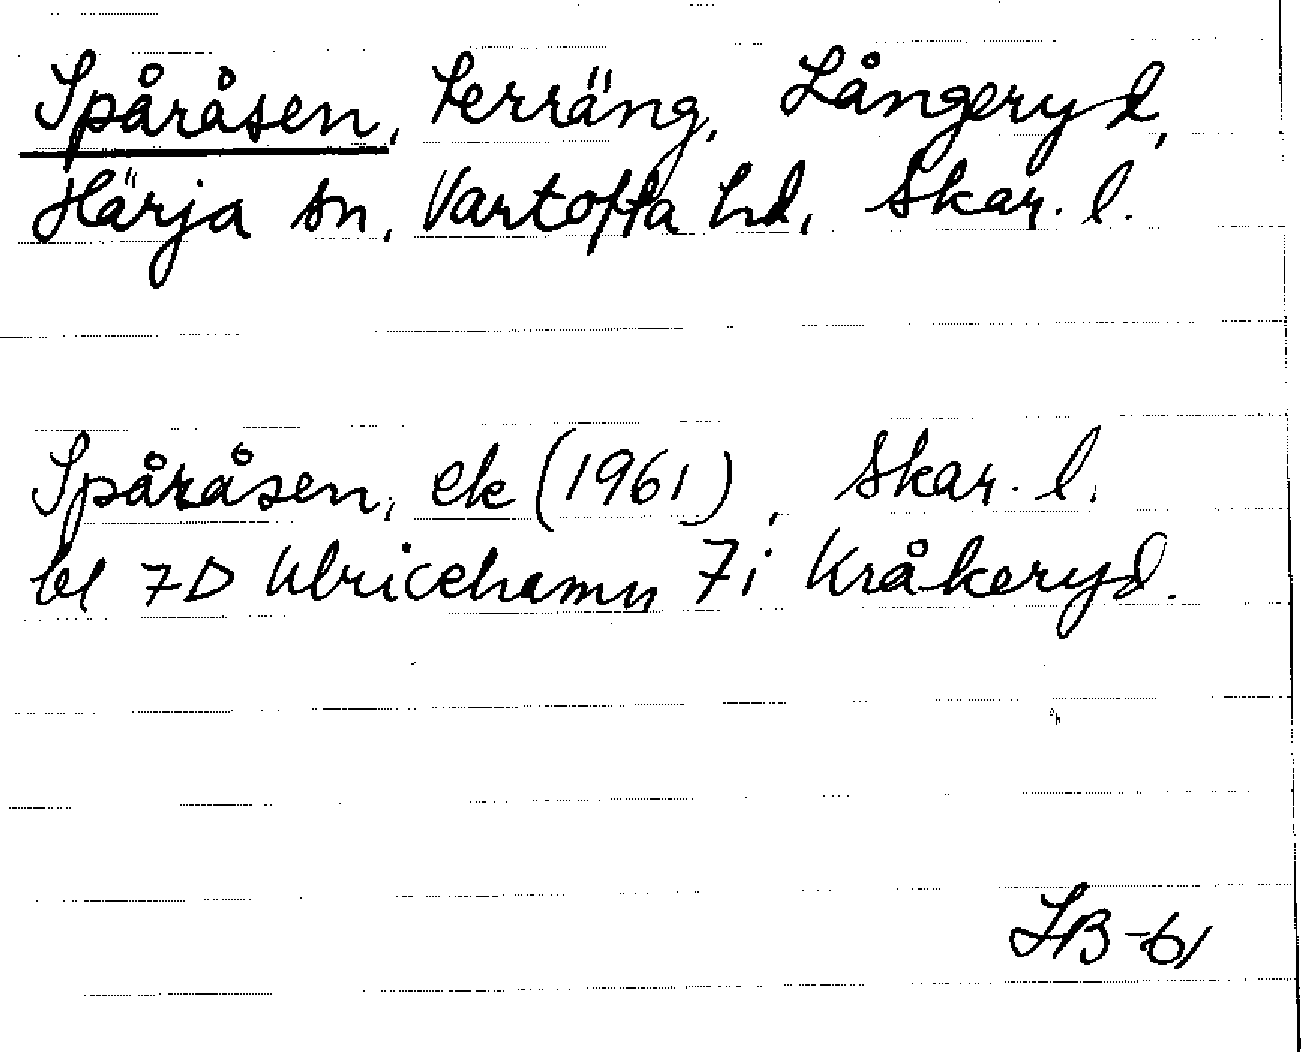 Spåråsen, Terräng, Långeryd,
Härja sn, Vartofta hd, Skar. l.
Spåråsen, ek (1961), Skar. l.
bl 7D Ulricehamn 7i Kråkeryd.
LB-61